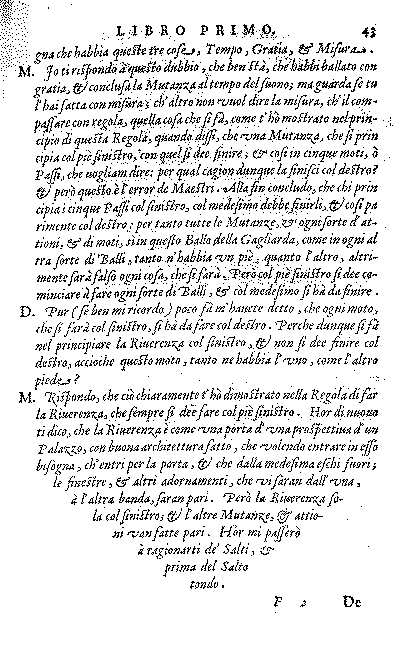 LIBRO PRIMO. 43
gna che habbia queste tre cose, Tempo, Gratia, & Misura.
M. Io ti rispondo à questo dubbio, che ben stà, che habbi ballato con
gratia, & conclusa la Mutanza al tempo del suono; ma guarda se tu
l'hai fatta con misura; ch'altro non vuol dire la misura, ch'il com-
passare con regola, quella cosa che si fà, come t'hò mostrato nel prin-
cipio di questa Regola, quando dissi, che vna Mutanza, che si prin
cipia col piè sinistro, con quel si dee finire; & cosi in cinque moti, ò
Passi, che vogliam dire: per qual cagion dunque la finisci col destro?
& però questo è l'error de Maestri. Alla fin concludo, che chi prin
cipia i cinque Passi col sinistro, col medesimo debbe finirli, & cosi pa
rimente col destro: per tanto tutte le Mutanze, & ogni sorte d'at-
tioni, & di moti, sì in questo Ballo della Gagliarda, come in ogni al
tra sorte di Balli, tanto n'habbia un piè, quanto l'altro, altri-
mente sarà falso ogni cosa, che si farà. Però col piè sinistro si dee co-
minciare à fare ogni sorte di Balli, & col medesimo si hà da finire.
D. Pur (se ben mi ricordo) poco fà m'hauete detto, che ogni moto,
che si farà col sinistro, si hà da fare col destro. Perche dunque si fà
nel principiare la Riuerenza col sinistro, & non si dee finire col
destro, accioche questo moto, tanto ne habbia l'vno, come l'altro
piede?
M. Rispondo, che ciò chiaramente t'hò dimostrato nella Regola di far
la Riuerenza, che sempre si dee fare col piè sinistro. Hor di nuouo
ti dico, che la Riuerenza è come vna porta d'vna prospettiua d'un
Palazzo, con buona architettura fatto, che volendo entrare in esso
bisogna, ch'entri per la porta, & che dalla medesima eschi fuori;
le finestre, & altri adornamenti, che vi saran dall'vna,
à l'altra banda, saran pari. Però la Riuerenza so-
la col sinistro; & l'altre Mutanze, & attio-
ni van fatte pari. Hor mi passerò
à ragionarti de' Salti, &
prima del Salto
tondo.
F 2 De